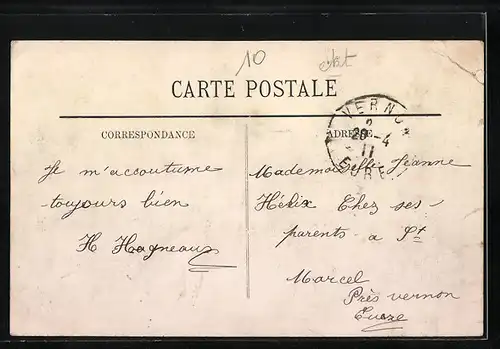 10
CARTE POSTALE
VERNON
2
26-4
11
EURE
CORRESPONDANCE
ADRESSE
Je m'accoutume
toujours bien
H Hagneaux
Mademoiselle Jeanne
Hélix Chez ses
parents a St
Marcel
Près vernon
Eure